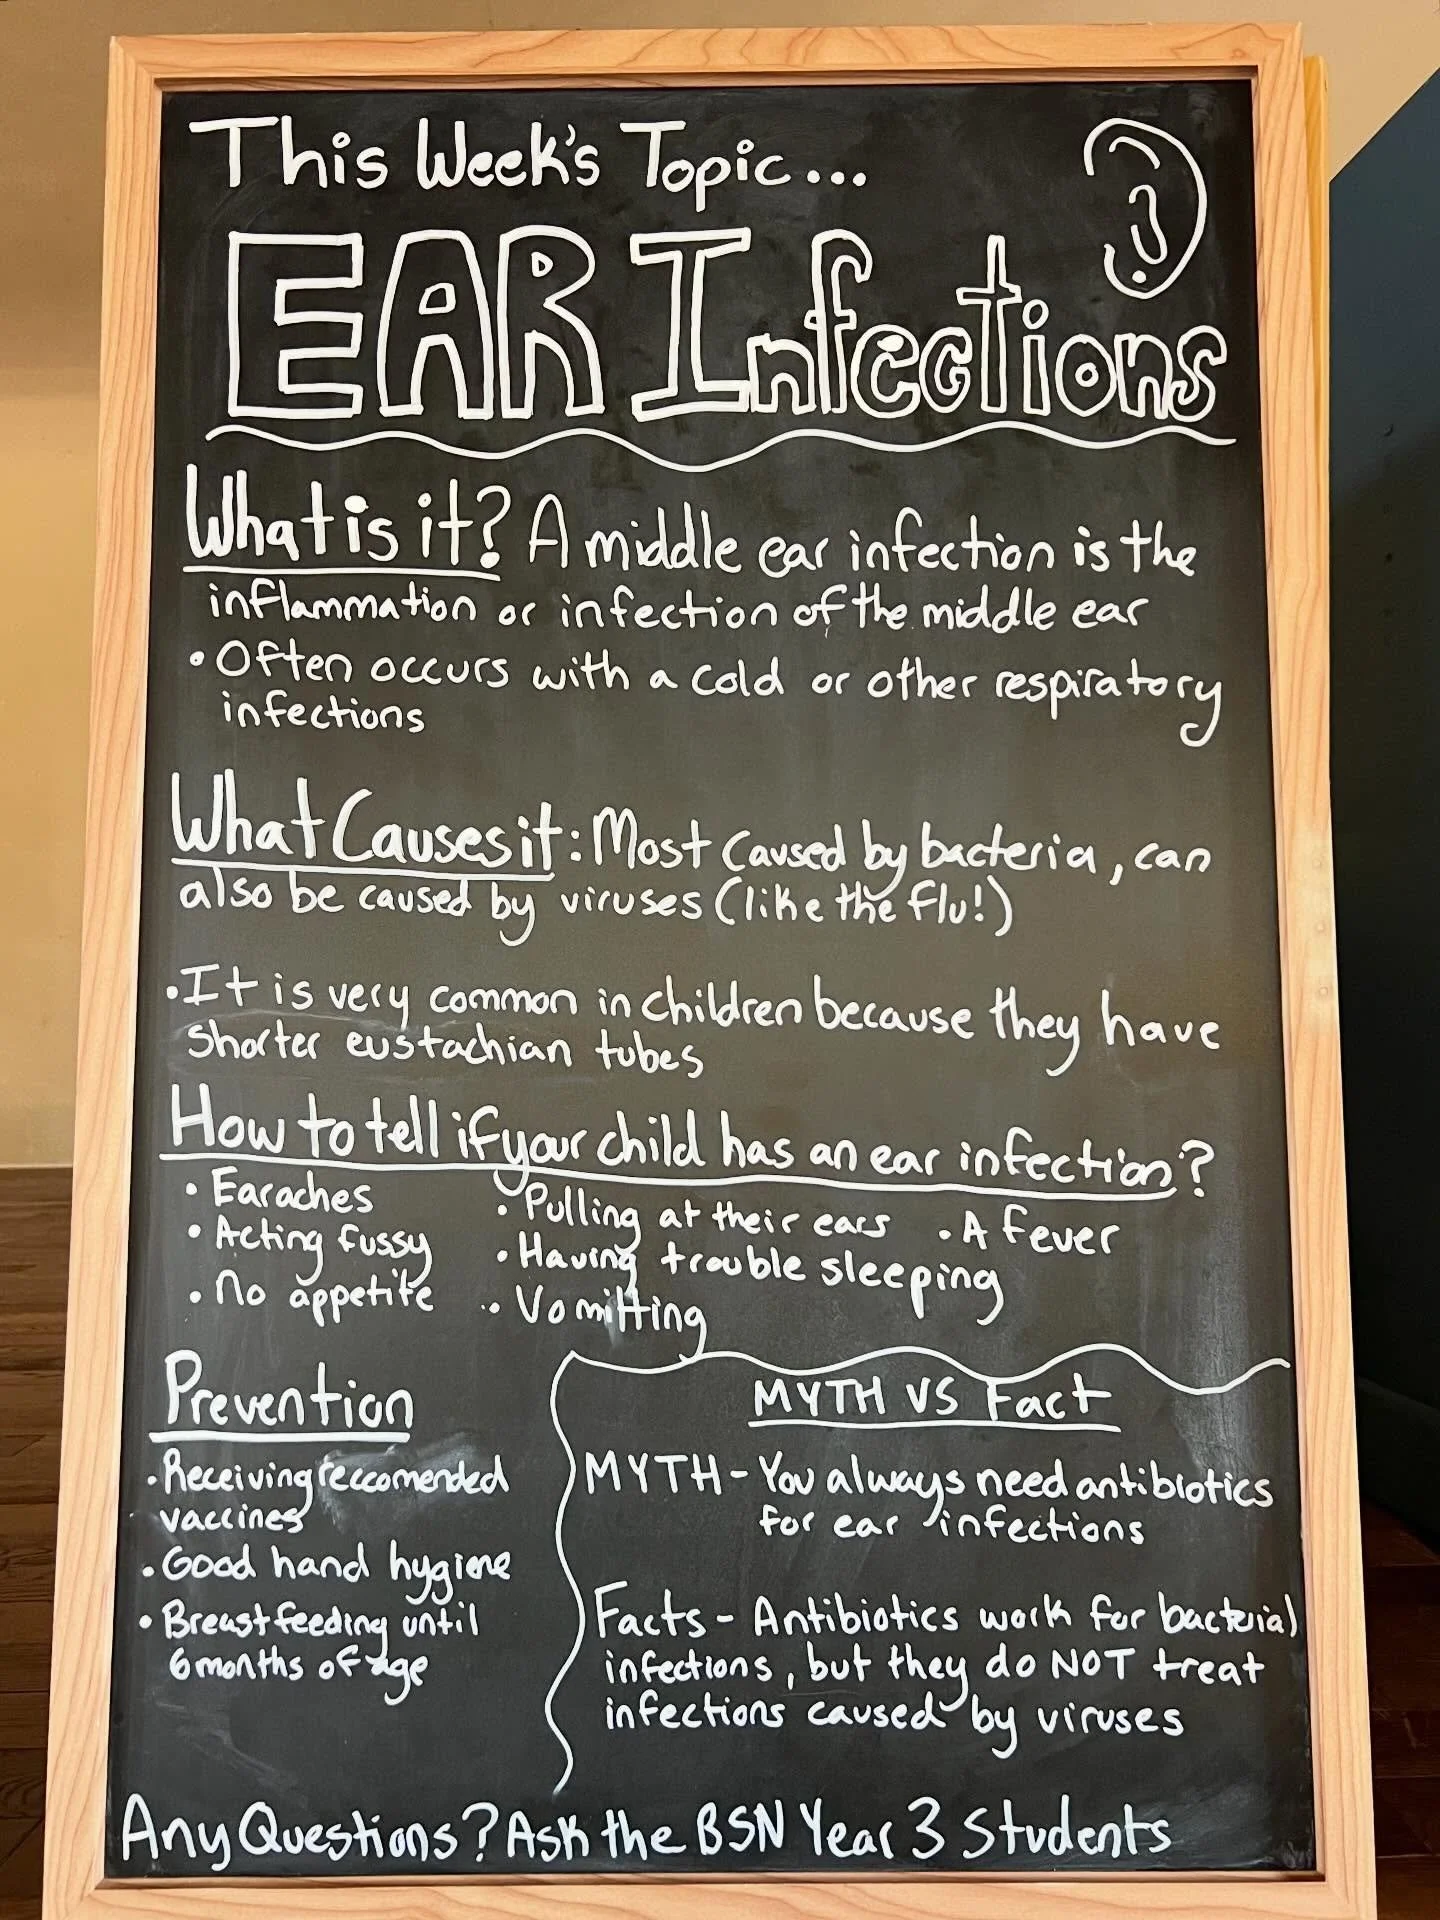 This Week's Topic...
EAR Infections
What is it? A middle ear infection is the
inflammation or infection of the middle ear
• Often occurs with a cold or other respiratory
infections
What Causes it: Most caused by bacteria, can
also be caused by viruses (like the flu!)
• It is very common in children because they have
shorter eustachian tubes
How to tell if your child has an ear infection?
• Earaches
• Acting fussy
• No appetite
• Pulling at their ears
• Having trouble sleeping
• Vomitting
• A fever
Prevention
• Receiving reccomended
vaccines
• Good hand hygiene
• Breastfeeding until
6 months of age
MYTH VS Fact
MYTH - You always need antibiotics
for ear infections
Facts - Antibiotics work for bacterial
infections, but they do NOT treat
infections caused by viruses
Any Questions? Ask the BSN Year 3 Students